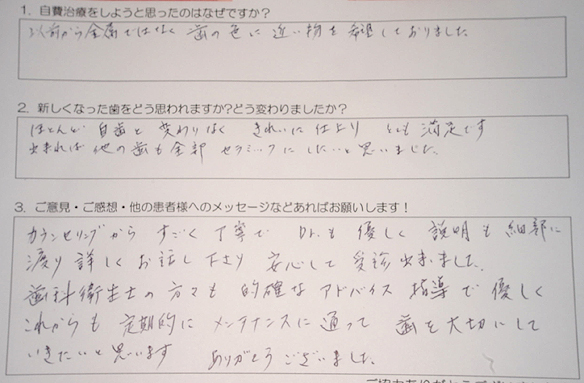 1. 自費治療をしようと思ったのはなぜですか？
以前から金歯ではなく 歯の色に近い物を希望しておりました。
2. 新しくなった歯をどう思われますか?どう変わりましたか？
ほとんど 自歯と 変わりなく きれいに仕上り とても 満足です
出来れば 他の歯も全部 セラミックに したいと思いました。
3. ご意見・ご感想・他の患者様へのメッセージなどあればお願いします！
カウンセリングから すごく 丁寧で Dr.も 優しく 説明も 細部に
渡り 詳しく お話し 下さり 安心して 受診 出来ました。
歯科衛生士の 方々も 的確な アドバイス 指導で 優しく
これからも 定期的に メンテナンスに 通って 歯を大切にして
いきたいと思います ありがとう ございました。